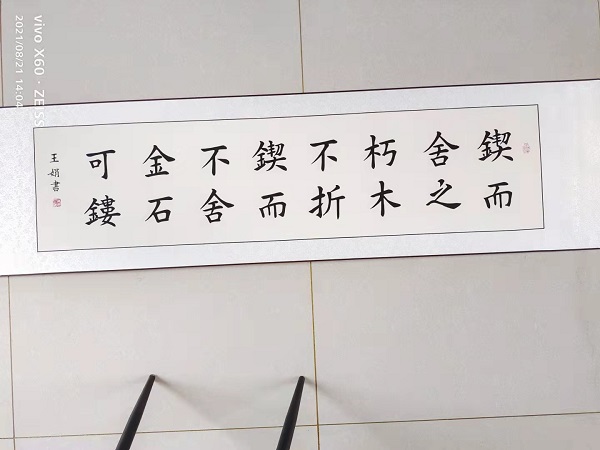 鍥而
舍之
朽木
不折
鍥而
不舍
金石
可鏤
王娟書
vivo X60 · ZEISS
2021/08/21 14:04